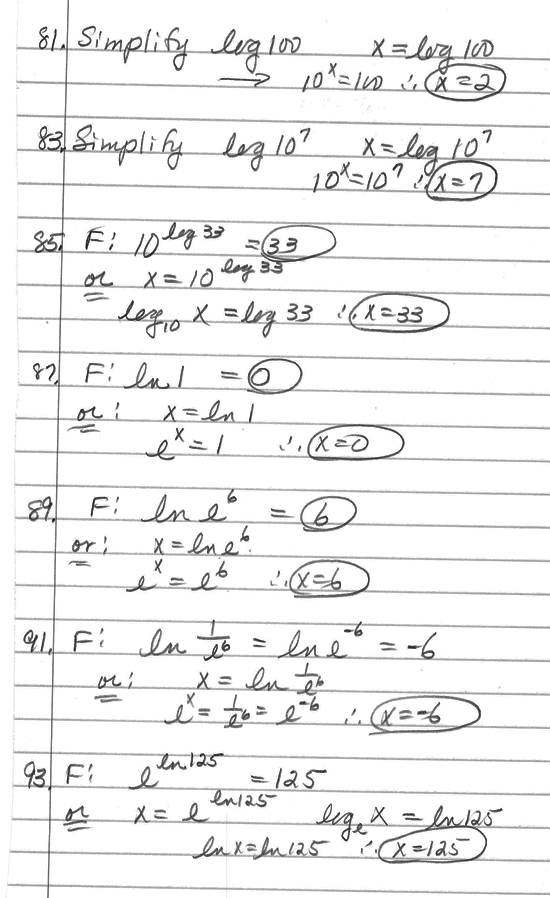 81. Simplify log 100 x = log 100
→ 10^x = 100 ∴ x = 2
83. Simplify log 10^7 x = log 10^7
10^x = 10^7 ∴ x = 7
85. F: 10^log 33 = 33
or x = 10^log 33
log₁₀ x = log 33 ∴ x = 33
87. F: ln 1 = 0
or: x = ln 1
e^x = 1 ∴ x = 0
89. F: ln e^6 = 6
or: x = ln e^6.
e^x = e^6 ∴ x = 6
91. F: ln 1/e^6 = ln e^-6 = -6
or: x = ln 1/e^6
e^x = 1/e^6 = e^-6 ∴ x = -6
93. F: e^ln 125 = 125
or x = e^ln 125 logₑ x = ln 125
ln x = ln 125 ∴ x = 125